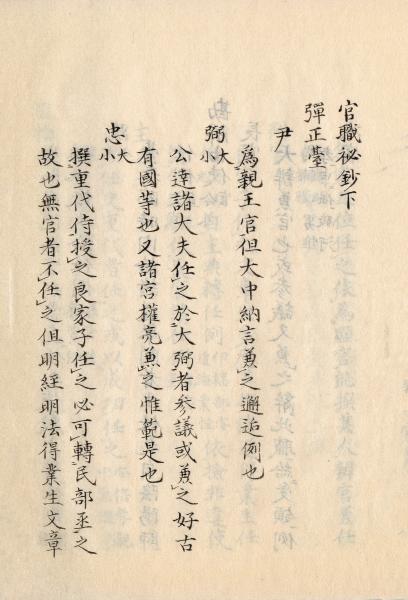 官職祕鈔下
彈正臺
尹
為親王官但大中納言兼之邂逅例也
弼大小
公達諸大夫任之於大弼者參議或兼之好古
有國等也又諸宮權亮兼之惟範是也
忠大小
撰重代侍授之良家子任之必可轉民部丞之
故也無官者不任之但明經明法得業生文章